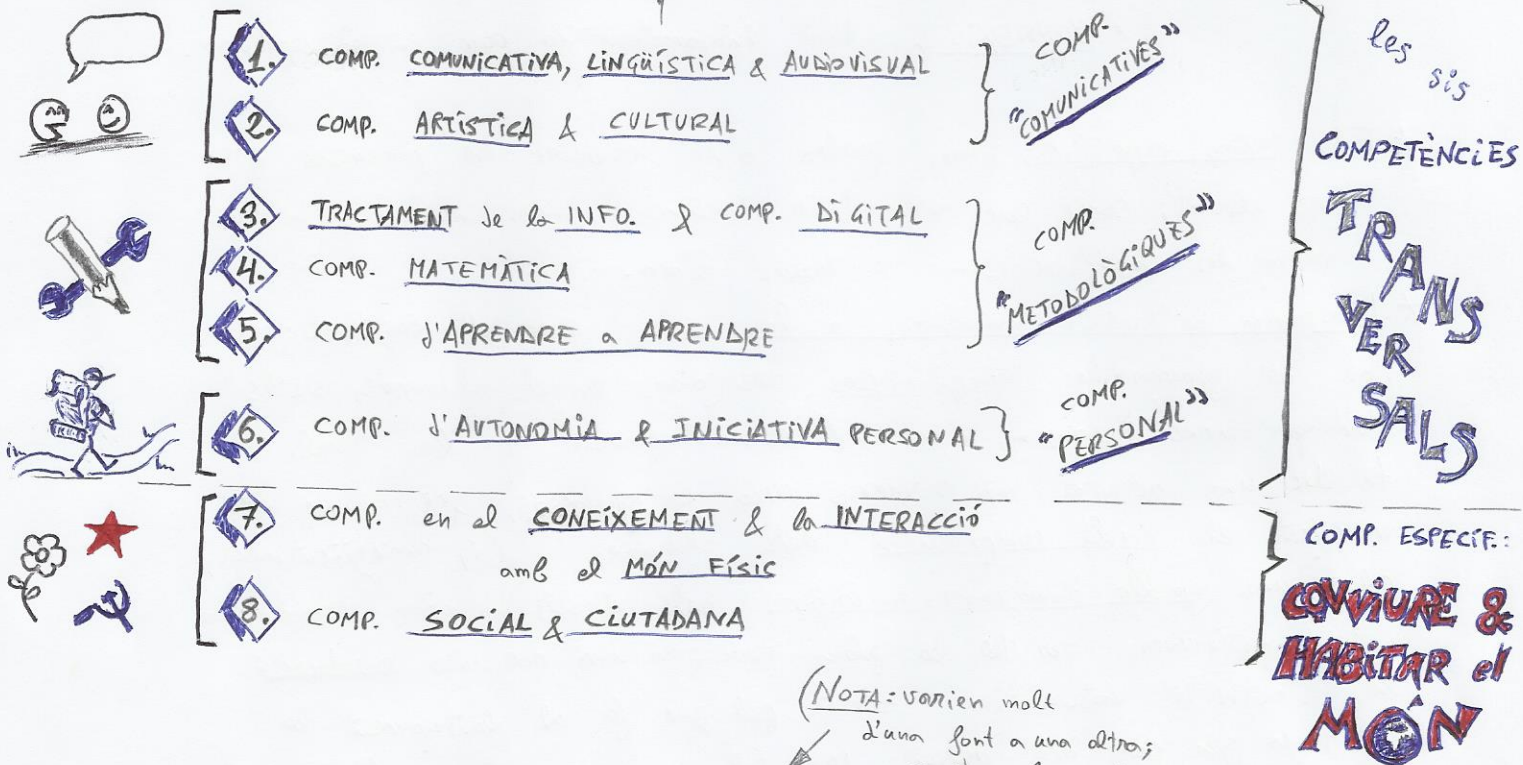 1. COMP. COMUNICATIVA, LINGÜÍSTICA & AUDIOVISUAL
2. COMP. ARTÍSTICA & CULTURAL
COMP.
"COMUNICATIVES"
3. TRACTAMENT de la INFO. & COMP. DIGITAL
4. COMP. MATEMÀTICA
5. COMP. d'APRENDRE a APRENDRE
COMP.
"METODOLÒGIQUES"
6. COMP. d'AUTONOMIA & INICIATIVA PERSONAL
COMP.
"PERSONAL"
les
sis
COMPETÈNCIES
TRANS
VER
SALS
7. COMP. en el CONEIXEMENT & la INTERACCIÓ
amb el MÓN FÍSIC
8. COMP. SOCIAL & CIUTADANA
COMP. ESPECÍF.:
CONVIURE &
HABITAR el
MÓN
(NOTA: varien molt
d'una font a una altra;